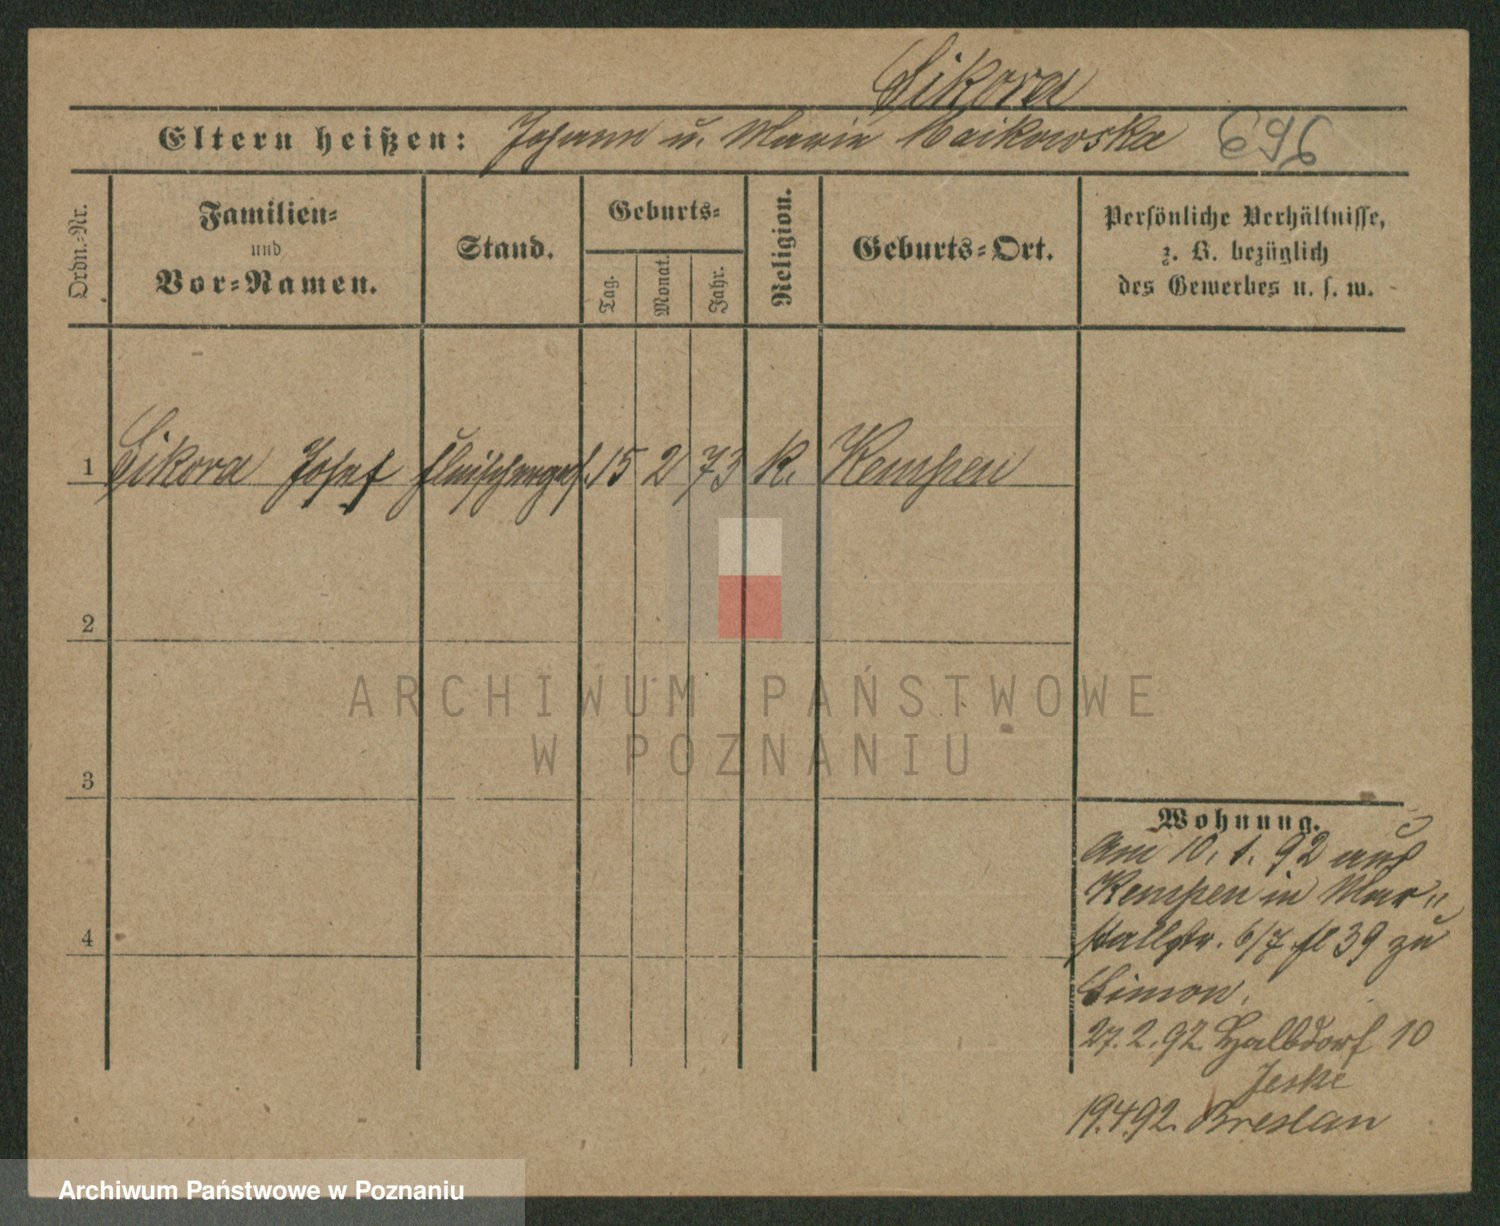 Sikora
Eltern heißen: Johann u. Marie Maikowska 696
Ordn.-Nr.
Familien-
und
Vor-Namen.
Stand.
Geburts-
Tag.
Monat.
Jahr.
Religion.
Geburts-Ort.
Persönliche Verhältnisse,
z. B. bezüglich
des Gewerbes u. s. w.
1 Sikora Josef Fleischerges. 15 2 73 K. Kempen
2
ARCHIWUM PAŃSTWOWE
W POZNANIU
3
4
Wohnung.
Am 10. 1. 92 aus
Kempen in Mar-
stallstr. 6/7 fl 39 zu
Simon.
27. 2. 92. Halbdorf 10
Jeske
19.4.92. Breslau
Archiwum Państwowe w Poznaniu